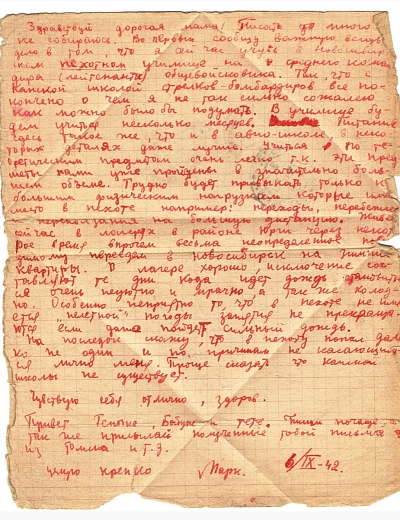 Здравствуй дорогая мама! Писать много
не собираюсь. Во первых сообщу важную вещь
дело в том что я сейчас учусь в Новосибир
ском пехотном училище на среднего коман
дира (лейтенанта) общевойсковика. Так, что с
Канской школой стрелков-бомбардиров все по
кончено о чем я не так сильно сожалею
как можно было бы подумать. В училище бу
дем учится несколько месяцев. Питание
здесь такое же что и в авио-школе в неко
торых деталях даже лучше. Учиться по те
оретическим предметам очень легко т.к. эти пред
меты нами уже пройдены в значительно боль
шем объеме. Трудно будет привыкать только к
большим физическим нагрузкам которые
в пехоте например: переходы, перебежки
переползания на большую дистанцию. Живем
сейчас в лагерях в районе Юрги через некото
рое время впрочем весьма неопределенное по
видимому переедем в Новосибирск на зимние
квартиры. В лагере хорошо, исключение сос
тавляют те дни когда идет дождь становит
ся очень неуютно и мрачно а так же холод
но. Особенно неприятно то что в пехоте не им
еется "нелетной" погоды занятия не прекраща
ются если даже пойдет сильный дождь.
На последок скажу, что в пехоту попал дале
ко не один и по причинам не касающим
ся лично меня. Проще сказать что Канской
школы не существует.
Чувствую себя отлично, здоров.
Привет Бабушке и тете. Пиши почаще, а
так же присылай полученные тобой письма
из Томска и т.д.
целую крепко Марк. 6/IX-42.